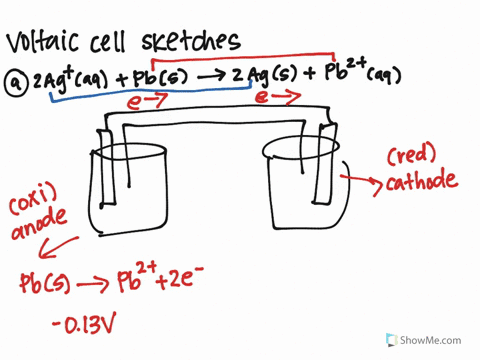 Voltaic cell sketches
(a) 2Ag⁺(aq) + Pb(s) → 2Ag(s) + Pb²⁺(aq)
e → e →
(red)
cathode
(oxi)
anode
Pb(s) → Pb²⁺ + 2e⁻
-0.13V
ShowMe.com